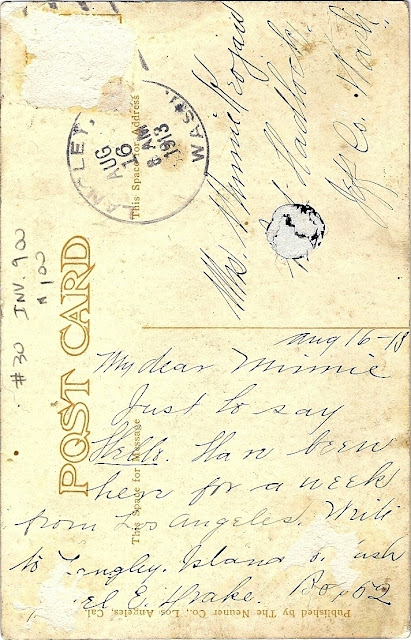 POST CARD
This Space for Address
This Space for Message
LANGLEY, WASH.
AUG
16
8 AM
1913
Mrs. Minnie
Hadlock
Jef Co. Wash.
# 30 INV. 900
100
Aug 16-13
My dear Minnie
Just to say
Hello. Have been
here for a week
from Los Angeles. Write
to Langley. Island Co. Wash
El E. Drake. Box 52
Published by The Neuner Co., Los Angeles, Cal.